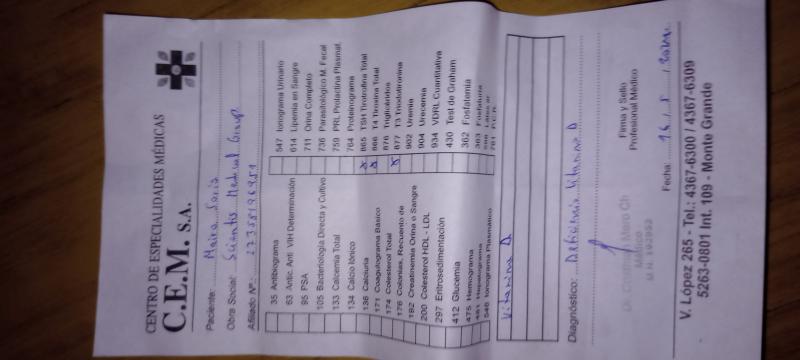 CENTRO DE ESPECIALIDADES MÉDICAS
C.E.M. S.A.
Paciente: Maira Soria
Obra Social: Scientis Medical Group
Afiliado Nº:
35 Antibiograma
63 Antic. Anti VIH Determinación
95 PSA
105 Bacteriología Directa y Cultivo
133 Calcemia Total
134 Calcio Iónico
136 Calciuria
171 Coagulograma Básico
174 Colesterol Total
176 Colonias, Recuento de
192 Creatinemia Orina o Sangre
200 Colesterol HDL - LDL
297 Eritrosedimentación
412 Glucemia
475 Hemograma
481 Hepatograma
546 Ionograma Plasmático
547 Ionograma Urinario
614 Lipemia en Sangre
711 Orina Completo
736 Parasitológico M. Fecal
759 PRL Prolactina Plasmat.
764 Proteinograma
x 865 TSH Tirotrofina Total
x 866 T4 Tiroxina Total
876 Triglicéridos
x 877 T3 Triiodotironina
902 Uremia
904 Uricemia
934 VDRL Cuantitativa
430 Test de Graham
362 Fosfatemia
363 Fosfaturia
Vitamina D
Diagnóstico: Deficiencia Vitamina D
Médico
Firma y Sello
Profesional Médico
Fecha: 16 / 5 /
V. Lopez 265 - Tel.: 4367-6300 / 4367-6309
5263-0801 Int. 109 - Monte Grande